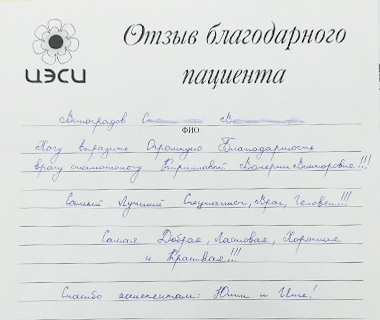 ЦЭСИ
Отзыв благодарного
пациента
Виноградов С В
ФИО
Хочу выразить Огромную Благодарность
врачу стоматологу Кирилловой Валерии Викторовне!!!
Самый Лучший Специалист, Врач, Человек!!!
Самая Добрая, Ласковая, Хорошая
и Красивая!!!
Спасибо ассистентам: Юлии и Инне!